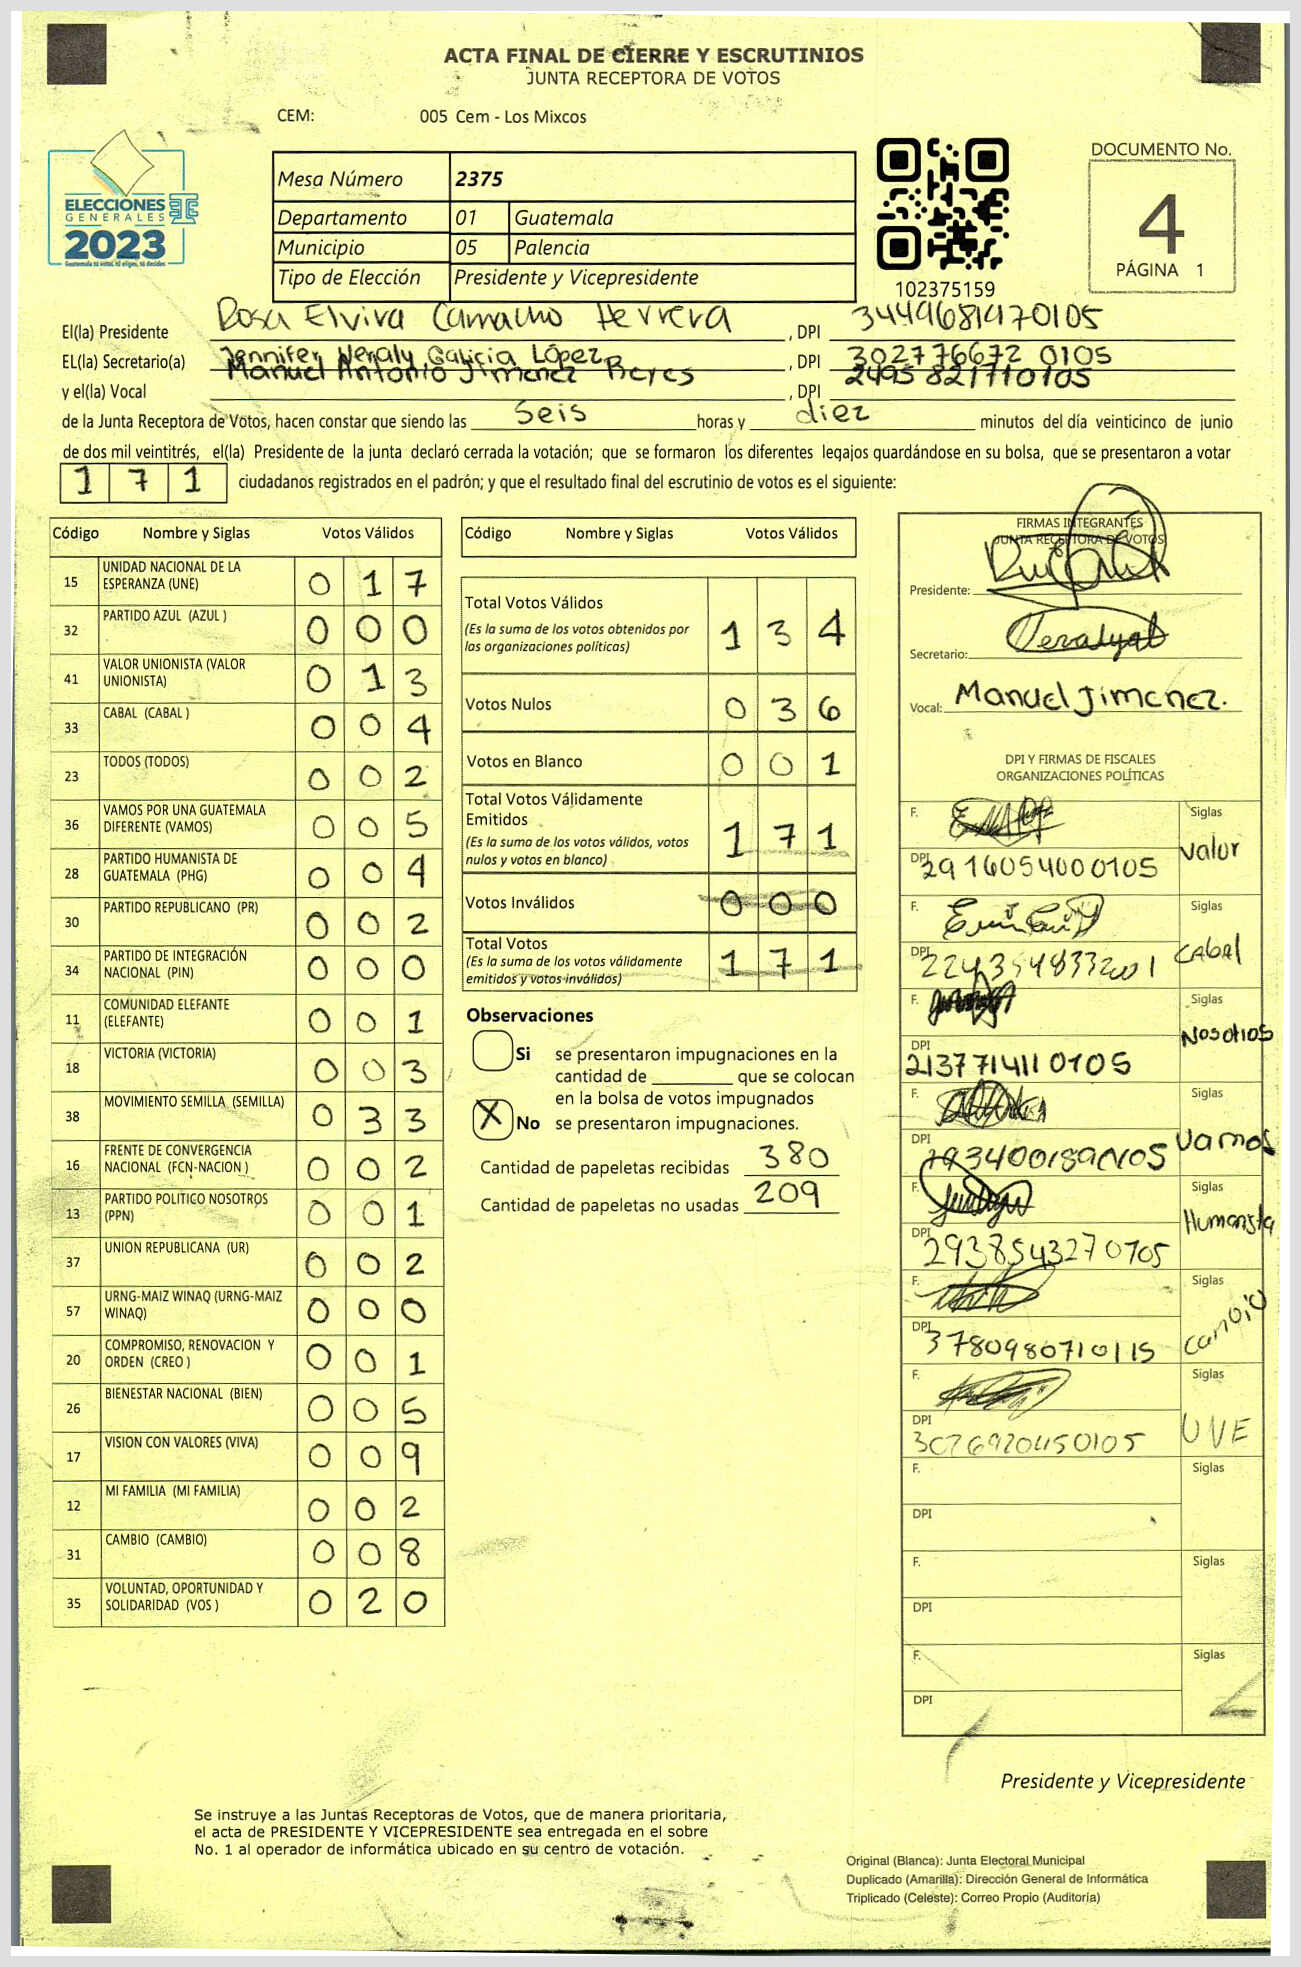 ACTA FINAL DE CIERRE Y ESCRUTINIOS
JUNTA RECEPTORA DE VOTOS
CEM: 005 Cem - Los Mixcos
ELECCIONES
GENERALES
2023
Guatemala tú votas, tú eliges, tú decides
Mesa Número 2375
Departamento 01 Guatemala
Municipio 05 Palencia
Tipo de Elección Presidente y Vicepresidente
102375159
DOCUMENTO No.
4
PÁGINA 1
El(la) Presidente Rosa Elvira Camacho Herrera, DPI 3449681970105
EL(la) Secretario(a) Jennifer Yeraly Galicia López, DPI 302776672 0105
y el(la) Vocal Manuel Antonio Jimenez Reyes, DPI 2495 821710105
de la Junta Receptora de Votos, hacen constar que siendo las Seis horas y diez minutos del día veinticinco de junio
de dos mil veintitrés, el(la) Presidente de la junta declaró cerrada la votación; que se formaron los diferentes legajos guardándose en su bolsa, que se presentaron a votar
171 ciudadanos registrados en el padrón; y que el resultado final del escrutinio de votos es el siguiente:
Código Nombre y Siglas Votos Válidos
15 UNIDAD NACIONAL DE LA ESPERANZA (UNE) 0 1 7
32 PARTIDO AZUL (AZUL ) 0 0 0
41 VALOR UNIONISTA (VALOR UNIONISTA) 0 1 3
33 CABAL (CABAL ) 0 0 4
23 TODOS (TODOS) 0 0 2
36 VAMOS POR UNA GUATEMALA DIFERENTE (VAMOS) 0 0 5
28 PARTIDO HUMANISTA DE GUATEMALA (PHG) 0 0 4
30 PARTIDO REPUBLICANO (PR) 0 0 2
34 PARTIDO DE INTEGRACIÓN NACIONAL (PIN) 0 0 0
11 COMUNIDAD ELEFANTE (ELEFANTE) 0 0 1
18 VICTORIA (VICTORIA) 0 0 3
38 MOVIMIENTO SEMILLA (SEMILLA) 0 3 3
16 FRENTE DE CONVERGENCIA NACIONAL (FCN-NACION ) 0 0 2
13 PARTIDO POLITICO NOSOTROS (PPN) 0 0 1
37 UNION REPUBLICANA (UR) 0 0 2
57 URNG-MAIZ WINAQ (URNG-MAIZ WINAQ) 0 0 0
20 COMPROMISO, RENOVACION Y ORDEN (CREO ) 0 0 1
26 BIENESTAR NACIONAL (BIEN) 0 0 5
17 VISION CON VALORES (VIVA) 0 0 9
12 MI FAMILIA (MI FAMILIA) 0 0 2
31 CAMBIO (CAMBIO) 0 0 8
35 VOLUNTAD, OPORTUNIDAD Y SOLIDARIDAD (VOS ) 0 2 0
Código Nombre y Siglas Votos Válidos
Total Votos Válidos 1 3 4
(Es la suma de los votos obtenidos por
las organizaciones políticas)
Votos Nulos 0 3 6
Votos en Blanco 0 0 1
Total Votos Válidamente
Emitidos 1 7 1
(Es la suma de los votos válidos, votos
nulos y votos en blanco)
Votos Inválidos 0 0 0
Total Votos 1 7 1
(Es la suma de los votos válidamente
emitidos y votos inválidos)
Observaciones
Si se presentaron impugnaciones en la
cantidad de ________ que se colocan
en la bolsa de votos impugnados
X No se presentaron impugnaciones.
Cantidad de papeletas recibidas 380
Cantidad de papeletas no usadas 209
FIRMAS INTEGRANTES
JUNTA RECEPTORA DE VOTOS
Presidente:
Secretario:
Vocal: Manuel Jimenez.
DPI Y FIRMAS DE FISCALES
ORGANIZACIONES POLÍTICAS
F. Siglas
DPI 2916054000105 Valor
F. Siglas
DPI CABAL
F. Siglas
DPI 2137714110105 Nosotros
F. Siglas
DPI Vamos
F. Siglas
DPI 2938543270705 Humanista
F. Siglas
DPI 3780980710115
F. Siglas
DPI UNE
F. Siglas
DPI
F. Siglas
DPI
F. Siglas
DPI
Presidente y Vicepresidente
Se instruye a las Juntas Receptoras de Votos, que de manera prioritaria,
el acta de PRESIDENTE Y VICEPRESIDENTE sea entregada en el sobre
No. 1 al operador de informática ubicado en su centro de votación.
Original (Blanca): Junta Electoral Municipal
Duplicado (Amarilla): Dirección General de Informática
Triplicado (Celeste): Correo Propio (Auditoría)